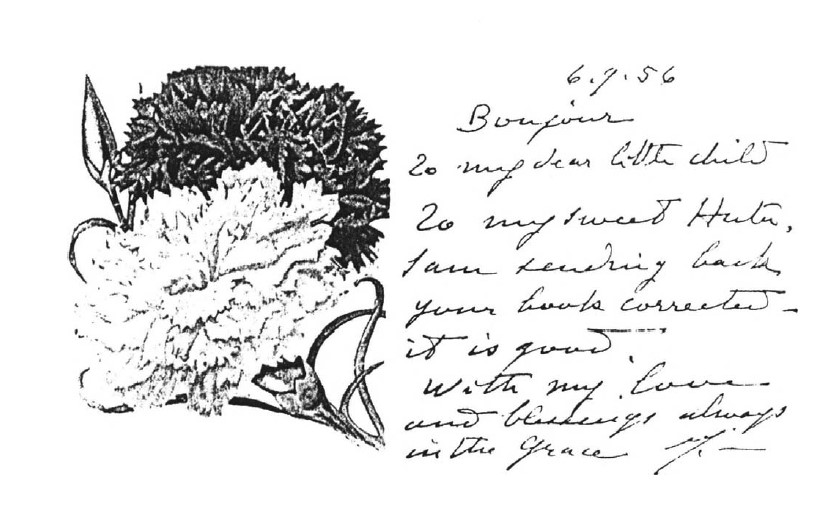 6.9.56
Bonjour
To my dear little child
To my sweet Huta,
I am sending back
your book corrected –
it is good.
With my love
and blessings always
in the Grace M. –